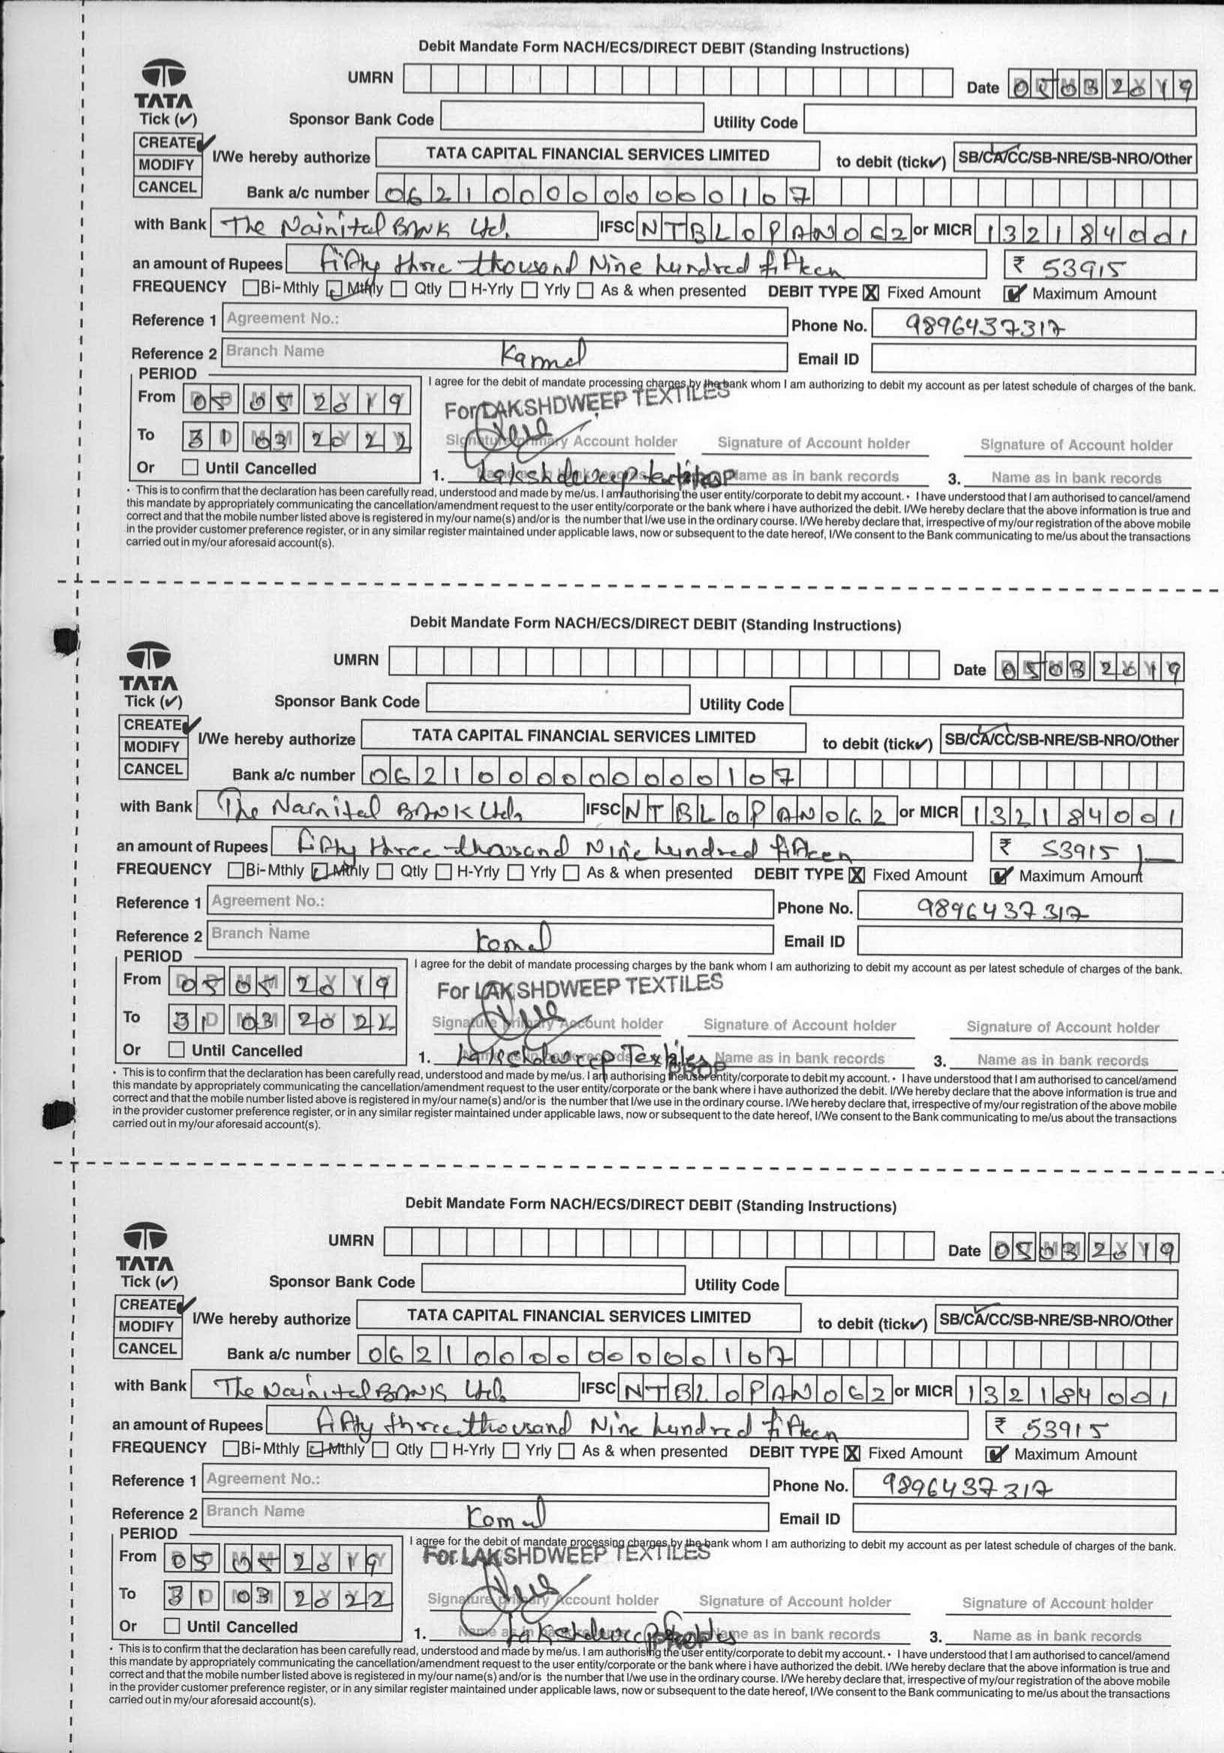 Debit Mandate Form NACH/ECS/DIRECT DEBIT (Standing Instructions)
TATA
UMRN
Date 05032019
Tick (✓)
Sponsor Bank Code
Utility Code
CREATE ✓
MODIFY
CANCEL
I/We hereby authorize TATA CAPITAL FINANCIAL SERVICES LIMITED to debit (tick✓) SB/CA/CC/SB-NRE/SB-NRO/Other
Bank a/c number 0621000000000107
with Bank The Nainital BANK Ltd. IFSC NTBL0PAN062 or MICR 132184001
an amount of Rupees fifty three thousand Nine hundred fifteen ₹ 53915
FREQUENCY Bi-Mthly Mthly Qtly H-Yrly Yrly As & when presented DEBIT TYPE X Fixed Amount ✓ Maximum Amount
Reference 1 Agreement No.: Phone No. 9896437317
Reference 2 Branch Name Karnal Email ID
PERIOD
I agree for the debit of mandate processing charges by the bank whom I am authorizing to debit my account as per latest schedule of charges of the bank.
From 05052019
For LAKSHDWEEP TEXTILES
To 31032022
Signature primary Account holder Signature of Account holder Signature of Account holder
Or Until Cancelled
1. Lakshdweep textiles PROP Name as in bank records 3. Name as in bank records
• This is to confirm that the declaration has been carefully read, understood and made by me/us. I am authorising the user entity/corporate to debit my account. • I have understood that I am authorised to cancel/amend
this mandate by appropriately communicating the cancellation/amendment request to the user entity/corporate or the bank where i have authorized the debit. I/We hereby declare that the above information is true and
correct and that the mobile number listed above is registered in my/our name(s) and/or is the number that I/we use in the ordinary course. I/We hereby declare that, irrespective of my/our registration of the above mobile
in the provider customer preference register, or in any similar register maintained under applicable laws, now or subsequent to the date hereof, I/We consent to the Bank communicating to me/us about the transactions
carried out in my/our aforesaid account(s).
Debit Mandate Form NACH/ECS/DIRECT DEBIT (Standing Instructions)
TATA
UMRN
Date 05032019
Tick (✓)
Sponsor Bank Code
Utility Code
CREATE ✓
MODIFY
CANCEL
I/We hereby authorize TATA CAPITAL FINANCIAL SERVICES LIMITED to debit (tick✓) SB/CA/CC/SB-NRE/SB-NRO/Other
Bank a/c number 0621000000000107
with Bank The Nainital BANK Ltd. IFSC NTBL0PAN062 or MICR 132184001
an amount of Rupees fifty three thousand Nine hundred fifteen ₹ 53915
FREQUENCY Bi-Mthly Mthly Qtly H-Yrly Yrly As & when presented DEBIT TYPE X Fixed Amount ✓ Maximum Amount
Reference 1 Agreement No.: Phone No. 9896437317
Reference 2 Branch Name Karnal Email ID
PERIOD
I agree for the debit of mandate processing charges by the bank whom I am authorizing to debit my account as per latest schedule of charges of the bank.
From 05052019
For LAKSHDWEEP TEXTILES
To 31032022
Signature primary Account holder Signature of Account holder Signature of Account holder
Or Until Cancelled
1. Lakshdweep Textiles PROP Name as in bank records 3. Name as in bank records
• This is to confirm that the declaration has been carefully read, understood and made by me/us. I am authorising the user entity/corporate to debit my account. • I have understood that I am authorised to cancel/amend
this mandate by appropriately communicating the cancellation/amendment request to the user entity/corporate or the bank where i have authorized the debit. I/We hereby declare that the above information is true and
correct and that the mobile number listed above is registered in my/our name(s) and/or is the number that I/we use in the ordinary course. I/We hereby declare that, irrespective of my/our registration of the above mobile
in the provider customer preference register, or in any similar register maintained under applicable laws, now or subsequent to the date hereof, I/We consent to the Bank communicating to me/us about the transactions
carried out in my/our aforesaid account(s).
Debit Mandate Form NACH/ECS/DIRECT DEBIT (Standing Instructions)
TATA
UMRN
Date 05032019
Tick (✓)
Sponsor Bank Code
Utility Code
CREATE ✓
MODIFY
CANCEL
I/We hereby authorize TATA CAPITAL FINANCIAL SERVICES LIMITED to debit (tick✓) SB/CA/CC/SB-NRE/SB-NRO/Other
Bank a/c number 0621000000000107
with Bank The Nainital BANK Ltd. IFSC NTBL0PAN062 or MICR 132184001
an amount of Rupees fifty three thousand Nine hundred fifteen ₹ 53915
FREQUENCY Bi-Mthly Mthly Qtly H-Yrly Yrly As & when presented DEBIT TYPE X Fixed Amount ✓ Maximum Amount
Reference 1 Agreement No.: Phone No. 9896437317
Reference 2 Branch Name Karnal Email ID
PERIOD
I agree for the debit of mandate processing charges by the bank whom I am authorizing to debit my account as per latest schedule of charges of the bank.
From 05052019
For LAKSHDWEEP TEXTILES
To 31032022
Signature primary Account holder Signature of Account holder Signature of Account holder
Or Until Cancelled
1. Lakshdweep Name as in bank records 3. Name as in bank records
• This is to confirm that the declaration has been carefully read, understood and made by me/us. I am authorising the user entity/corporate to debit my account. • I have understood that I am authorised to cancel/amend
this mandate by appropriately communicating the cancellation/amendment request to the user entity/corporate or the bank where i have authorized the debit. I/We hereby declare that the above information is true and
correct and that the mobile number listed above is registered in my/our name(s) and/or is the number that I/we use in the ordinary course. I/We hereby declare that, irrespective of my/our registration of the above mobile
in the provider customer preference register, or in any similar register maintained under applicable laws, now or subsequent to the date hereof, I/We consent to the Bank communicating to me/us about the transactions
carried out in my/our aforesaid account(s).